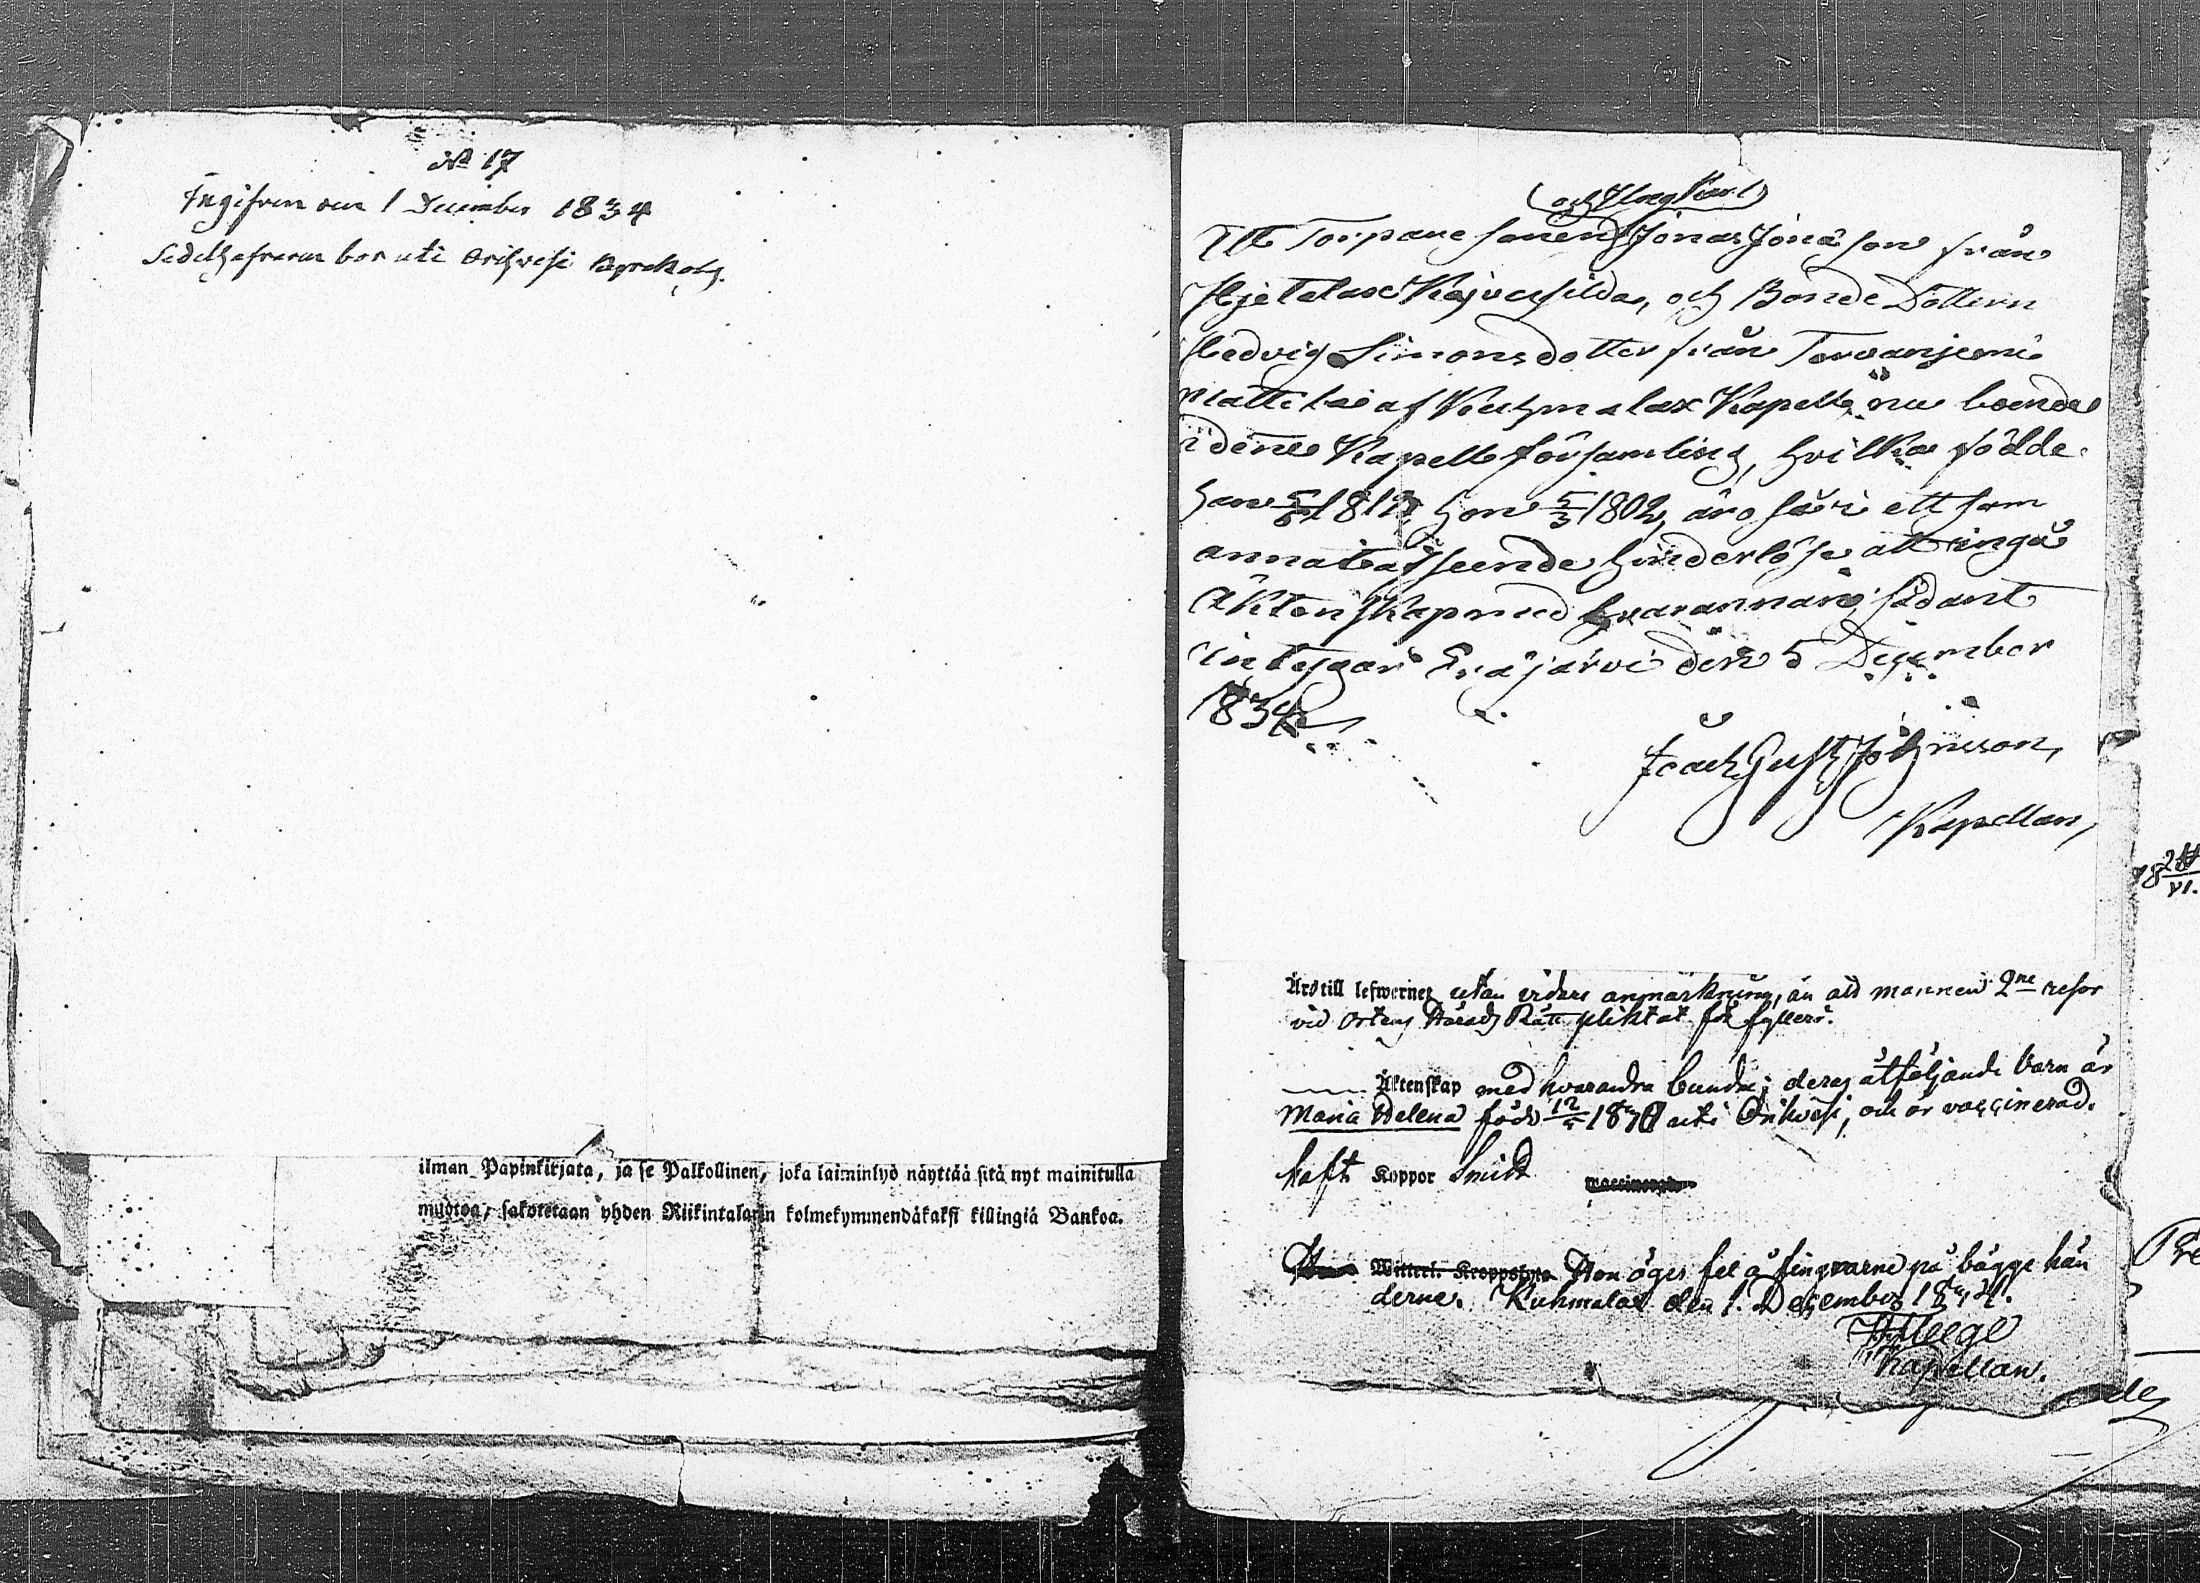 No 17
Ingifven den 1 December 1834
Sedelhafvaren bor uti Orihvesi Kyrckoby.
ilman Papinkirjata, ja se Palkollinen, joka laiminlyö näyttää sitä nyt mainitulla
muotoa, sakotetaan yhden Riikintalarin kolmekymmendäkaksi killingiä Bankoa.
(och Ynglin)
Att Torpare sonen Jonas Jonasson från
Hjetalax och Bonde Dottern
Hedvig Simonsdotter från Torvanjemi
Mattila af Kuhmalax Kapell, nu boende
i denne Kapell församling, hvilka födde
han 5/6 181 hon 5/3 1802, äro så i ett som
annat afseende hinderlöse att ingå
Äktenskap med hvarannan, sådant
intygar Eräjärvi den 5 December
1834
Joach Gust Johnsson,
Kapellan,
Äro till lefwernet utan vidare anmärkning, än att mannen 2ne resor
vid Ortens Härads Rätt pliktat för fylleri.
Äktenskap med hvarandra bundne; deras åtföljande barn är
Maria Helena född 12/5 18 uti Orihvesi, och är vaccinerad.
haft Koppor Smitt
Witterl. Kroppslyte Hon äger fel å fingrarne på bägge hän
derne. Kuhmalax den 1. December 1834.
Kapellan.